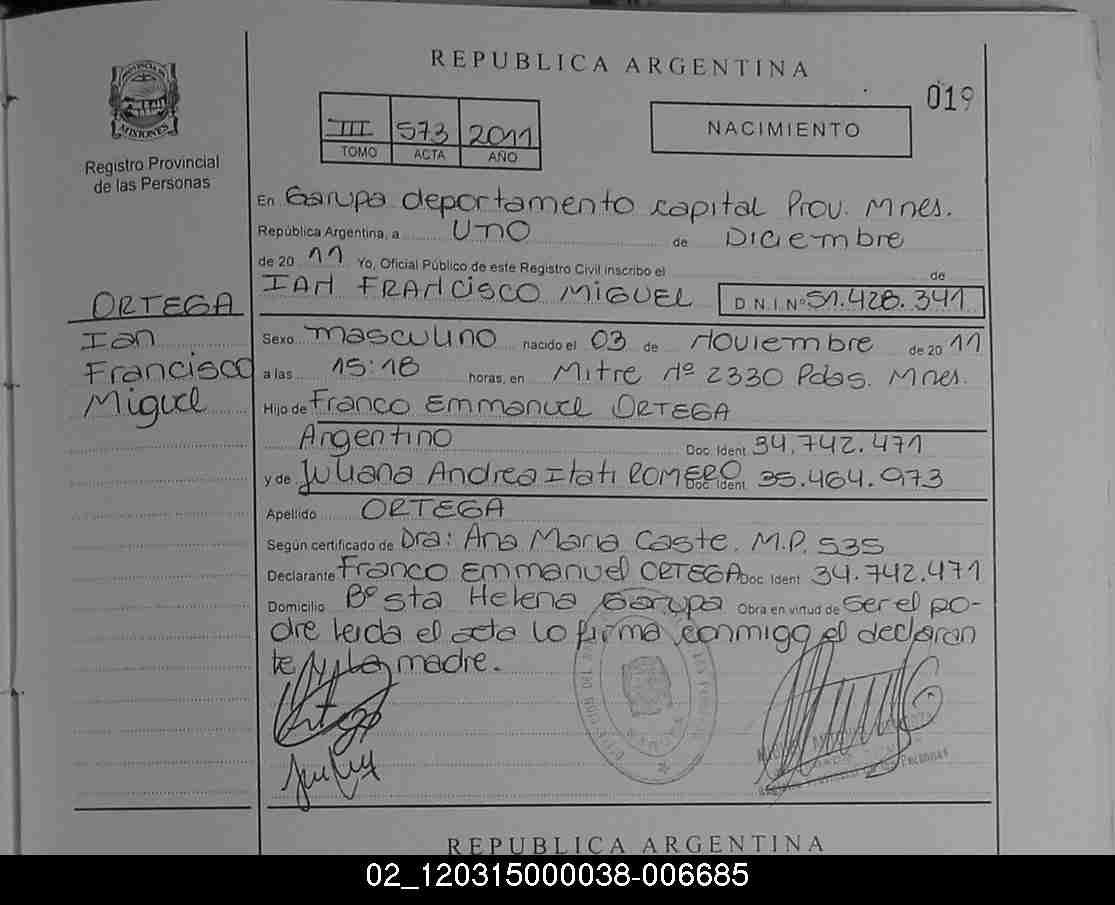 REPUBLICA ARGENTINA
019
III 573 2011
TOMO ACTA AÑO
NACIMIENTO
MISIONES
Registro Provincial
de las Personas
ORTEGA
Ian
Francisco
Miguel
En Garupa departamento capital Prov. Mnes.
República Argentina, a UNO de Diciembre
de 20 11 Yo, Oficial Público de este Registro Civil inscribo el de
IAN FRANCISCO MIGUEL D.N.I.Nº 51.428.341
Sexo masculino nacido el 03 de Noviembre de 20 11
a las 15:18 horas, en Mitre Nº 2330 Pdas. Mnes.
Hijo de Franco Emmanuel ORTEGA
Argentino Doc. Ident. 34.742.471
y de Juliana Andrea Itati ROMERO Doc. Ident. 35.464.973
Apellido ORTEGA
Según certificado de Dra: Ana Maria Caste. M.P. 535
Declarante Franco Emmanuel ORTEGA Doc. Ident. 34.742.471
Domicilio Bº Sta Helena Garupa Obra en virtud de ser el pa-
dre leida el acta lo firma conmigo el declaran
te y la madre.
REPUBLICA ARGENTINA
02_120315000038-006685